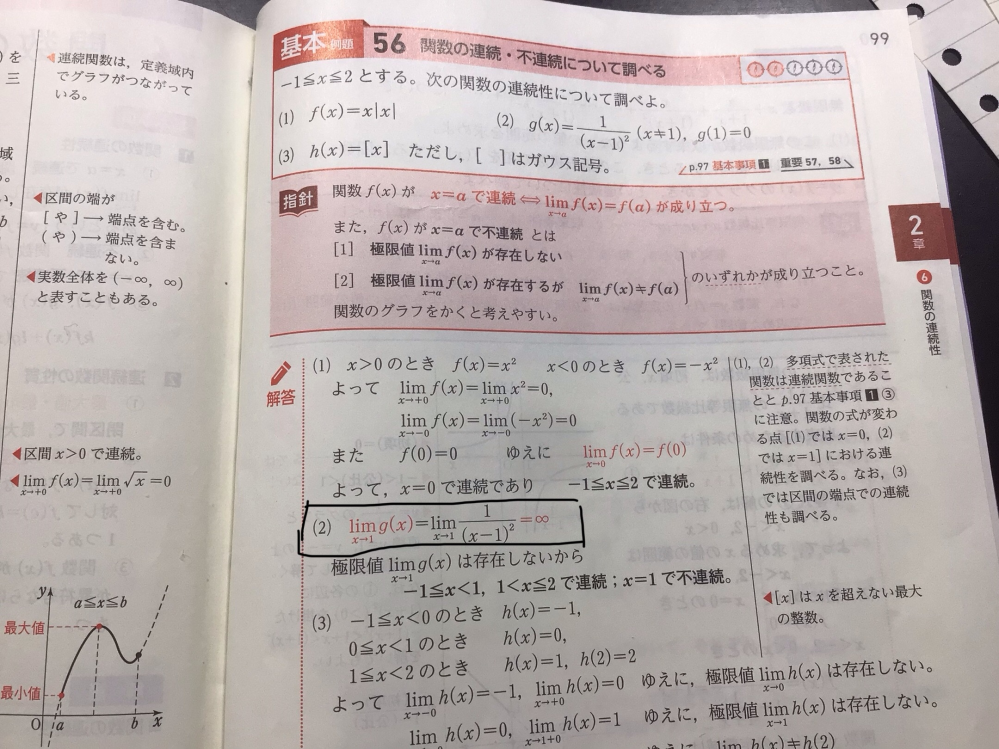 99
基本 例題 56 関数の連続・不連続について調べる
-1≦x≦2 とする。次の関数の連続性について調べよ。
(1) f(x)=x|x| (2) g(x)=1/(x-1)² (x≠1), g(1)=0
(3) h(x)=[x] ただし, [ ] はガウス記号。
p.97 基本事項 1 重要 57, 58
指針 関数 f(x) が x=a で連続 ⇔ lim_{x→a} f(x)=f(a) が成り立つ。
また, f(x) が x=a で不連続 とは
[1] 極限値 lim_{x→a} f(x) が存在しない
[2] 極限値 lim_{x→a} f(x) が存在するが lim_{x→a} f(x)≠f(a)
のいずれかが成り立つこと。
関数のグラフをかくと考えやすい。
解答
(1) x>0 のとき f(x)=x² x<0 のとき f(x)=-x²
よって lim_{x→+0} f(x)=lim_{x→+0} x²=0,
lim_{x→-0} f(x)=lim_{x→-0} (-x²)=0
また f(0)=0 ゆえに lim_{x→0} f(x)=f(0)
よって, x=0 で連続であり -1≦x≦2 で連続。
(2) lim_{x→1} g(x)=lim_{x→1} 1/(x-1)²=∞
極限値 lim_{x→1} g(x) は存在しないから
-1≦x<1, 1<x≦2 で連続 ; x=1 で不連続。
(3) -1≦x<0 のとき h(x)=-1,
0≦x<1 のとき h(x)=0,
1≦x<2 のとき h(x)=1, h(2)=2
よって lim_{x→-0} h(x)=-1, lim_{x→+0} h(x)=0 ゆえに, 極限値 lim_{x→0} h(x) は存在しない。
lim h(x)=0, lim_{x→1+0} h(x)=1 ゆえに, 極限値 lim_{x→1} h(x) は存在しない。
ゆえに lim h(x)≠h(2)
(1), (2) 多項式で表された
関数は連続関数であるこ
とと p.97 基本事項 1 ③
に注意。関数の式が変わ
る点 [(1) では x=0, (2)
では x=1] における連
続性を調べる。なお, (3)
では区間の端点での連続
性も調べる。
◀[x] は x を超えない最大
の整数。
2
章
6
関数の連続性
を
三
◀連続関数は, 定義域内
でグラフがつながって
いる。
域
b
◀区間の端が
[ や ] → 端点を含む。
( や ) → 端点を含ま
ない。
◀実数全体を (-∞, ∞)
と表すこともある。
◀区間 x>0 で連続。
◀lim_{x→+0} f(x)=lim_{x→+0} √x=0
y
a≦x≦b
最大値
最小値
O a b x